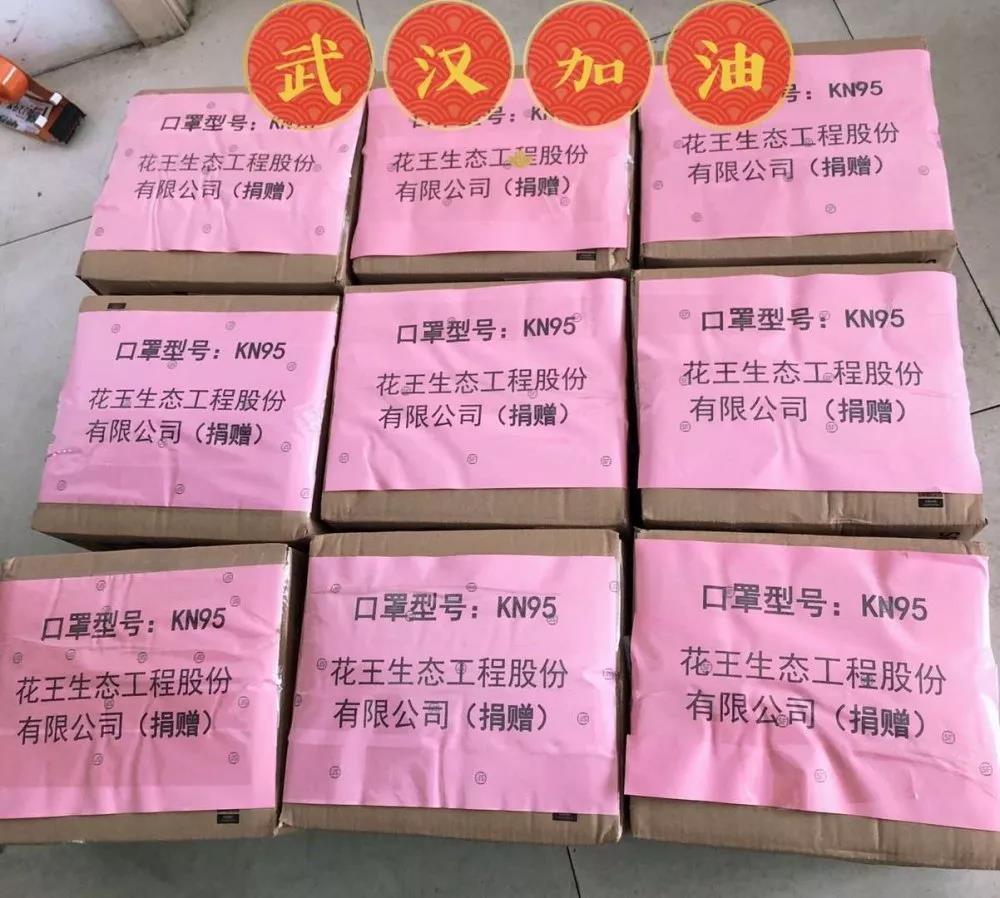 武汉加油
口罩型号：KN95
花王生态工程股份
有限公司（捐赠）
口罩型号：KN
花王生态工程股份
有限公司（捐赠）
号：KN95
花王生态工程股份
有限公司（捐赠）
口罩型号：KN95
花玉生态工程股份
有限公司（捐赠）
口罩型号：KN95
花王生态工程股份
有限公司（捐赠）
口罩型号：KN95
花王生态工程股份
有限公司（捐赠）
口罩型号：KN95
花王生态工程股份
有限公司（捐赠）
口罩型号：KN95
花王生态工程股份
有限公司（捐赠）
口罩型号：KN95
花王生态工程股份
有限公司（捐赠）